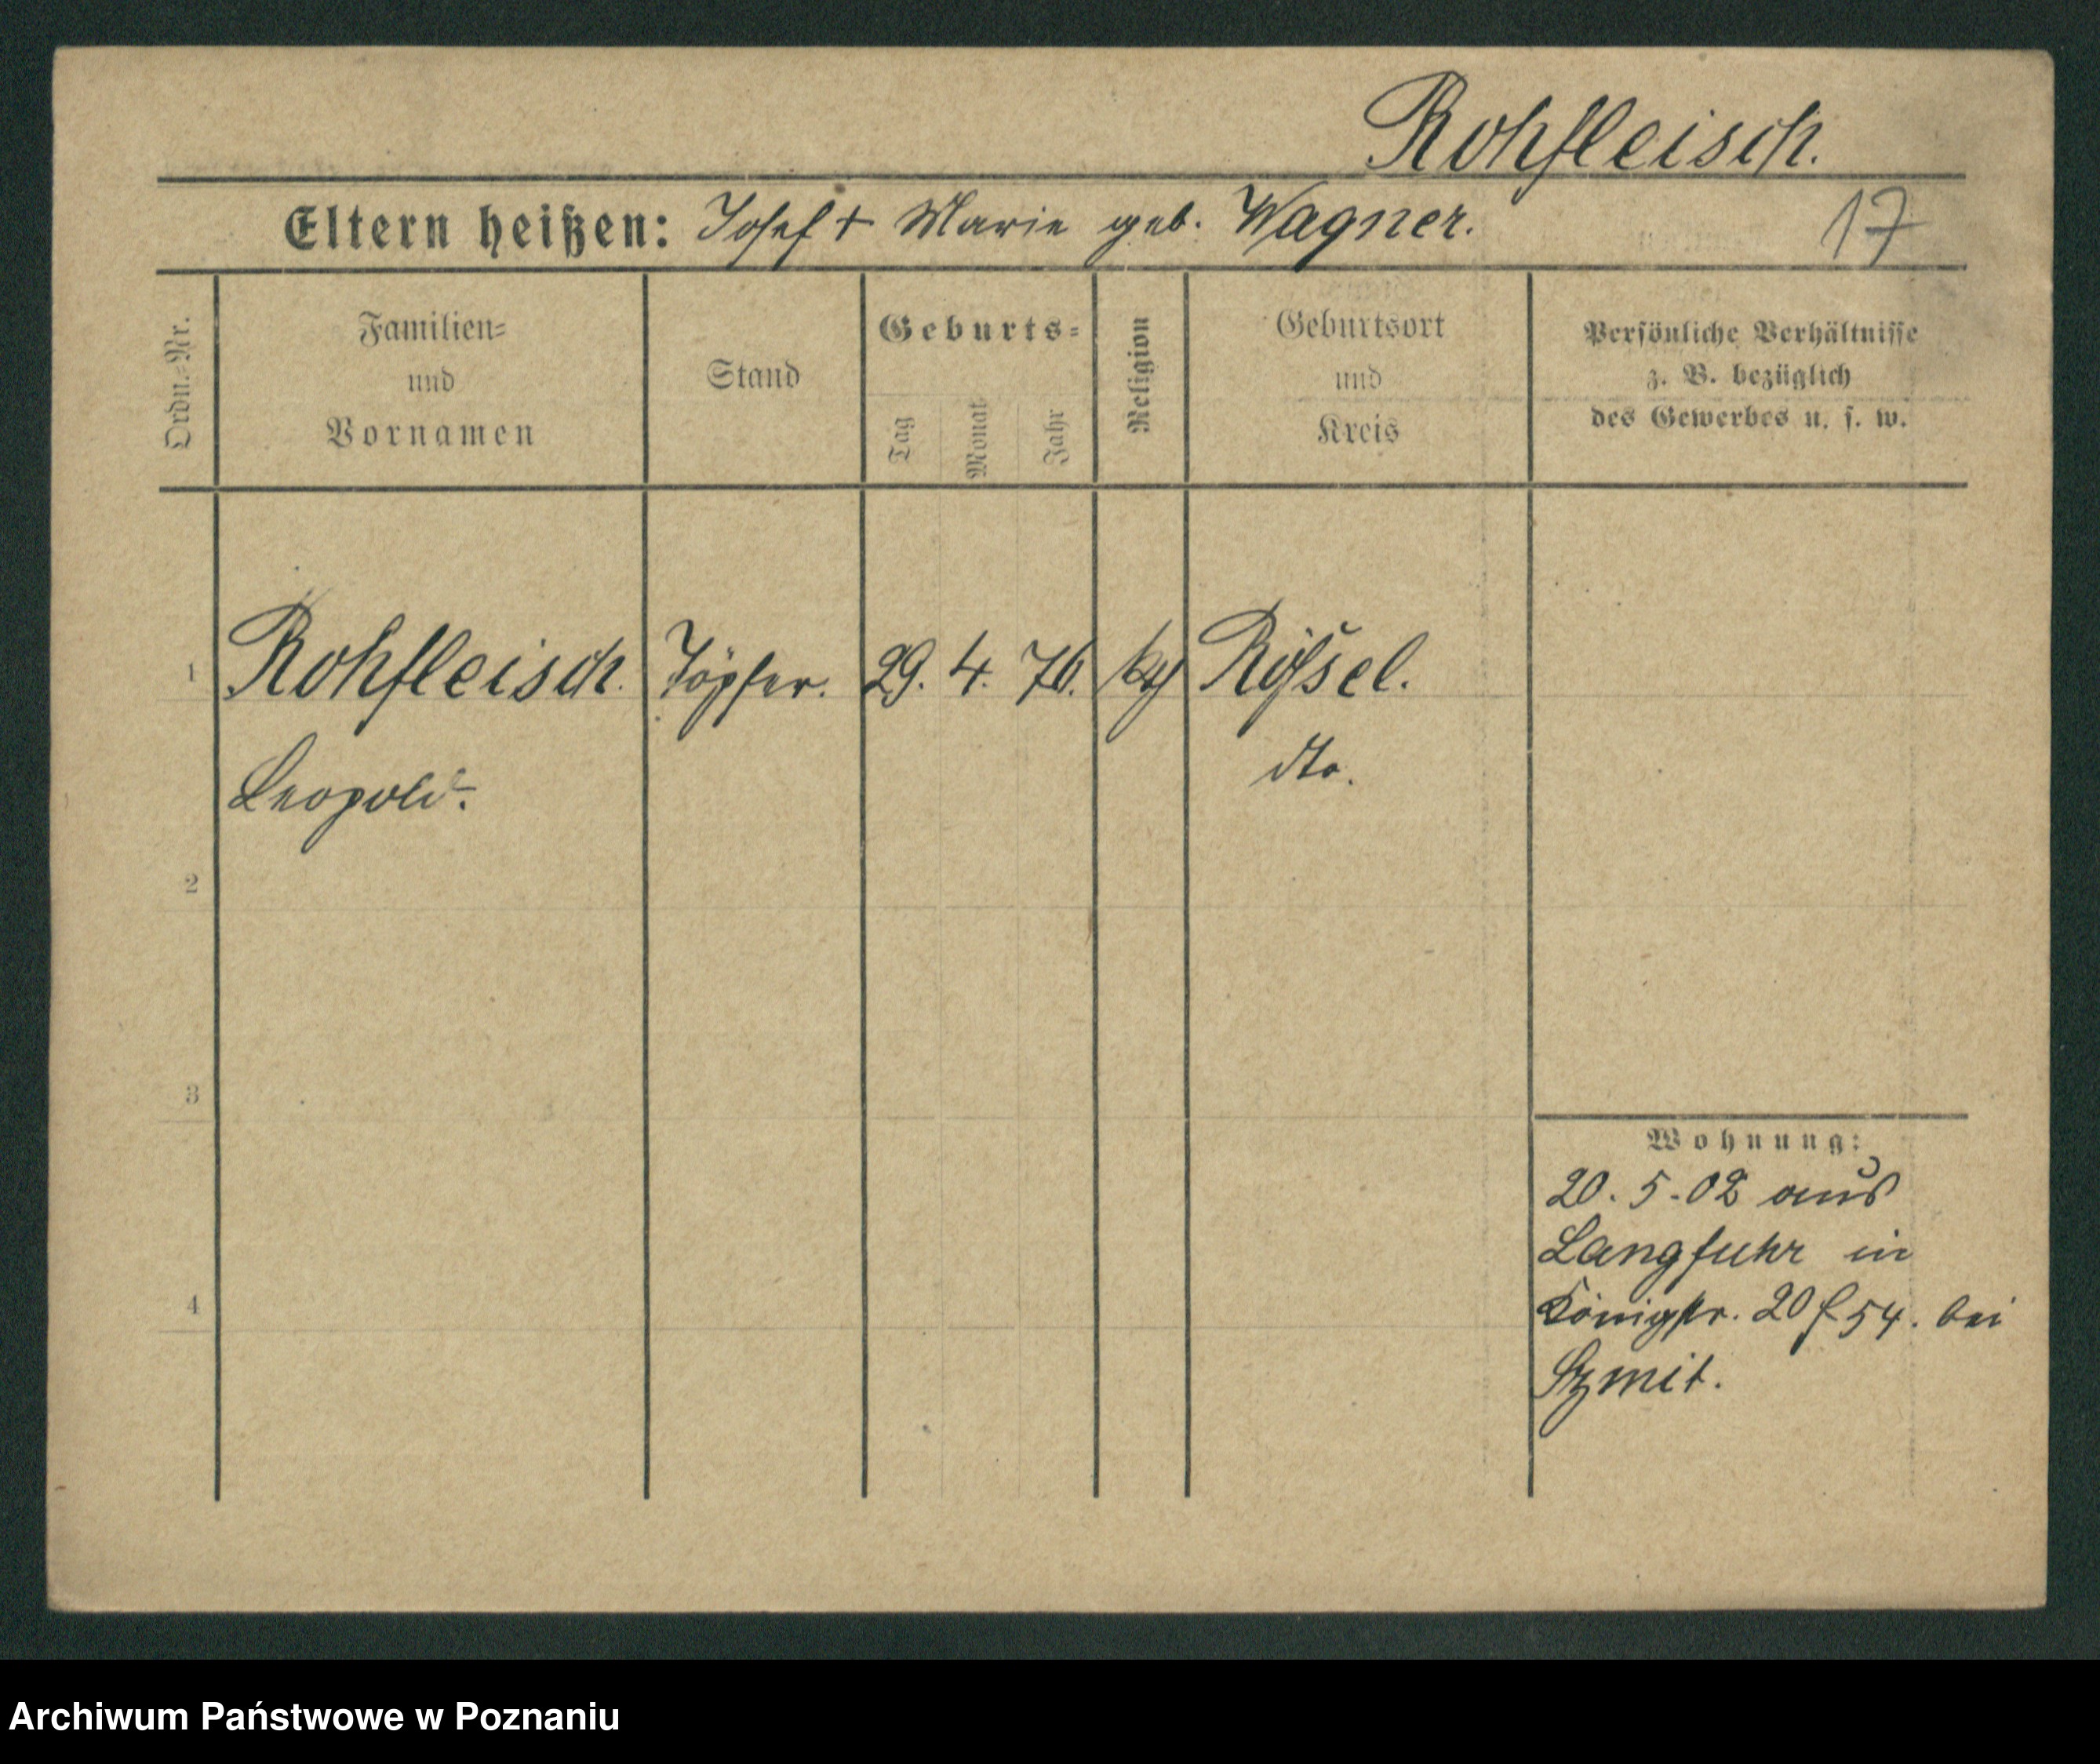 Rohfleisch.
Eltern heißen: Josef + Marie geb. Wagner.
17
Ordn.=Nr.
Familien=
und
Vornamen
Stand
Geburts=
Tag
Monat
Jahr
Religion
Geburtsort
und
Kreis
Persönliche Verhältnisse
z. B. bezüglich
des Gewerbes u. s. w.
1 Rohfleisch. Töpfer. 29. 4. 76. Rößel.
Leopold. dto.
2
3
4
Wohnung:
20. 5. 02 aus
Langfuhr in
Königstr. 20 54. bei
Szmit.
Archiwum Państwowe w Poznaniu